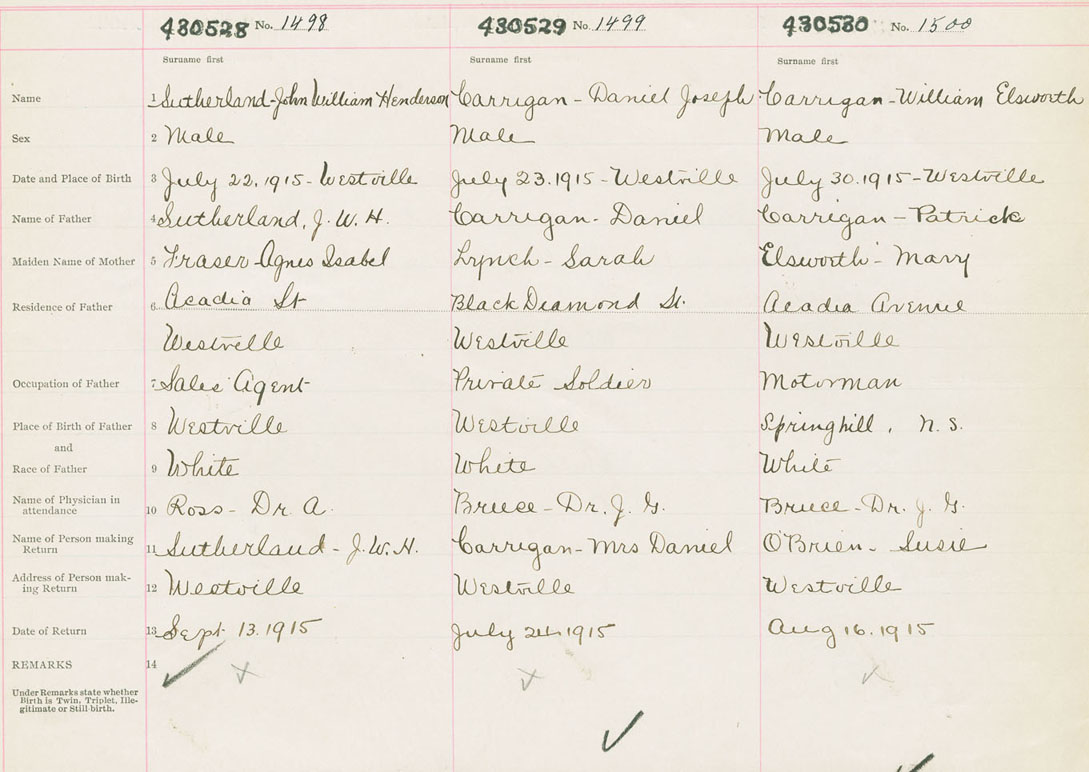 430528 No. 1498 430529 No. 1499 430530 No. 1500
Surname first Surname first Surname first
Name 1 Sutherland-John William Henderson Carrigan - Daniel Joseph Carrigan - William Elsworth
Sex 2 Male Male Male
Date and Place of Birth 3 July 22, 1915 - Westville July 23. 1915 - Westville July 30. 1915 - Westville
Name of Father 4 Sutherland, J. W. H. Carrigan - Daniel Carrigan - Patrick
Maiden Name of Mother 5 Fraser - Agnes Isabel Lynch - Sarah Elsworth - Mary
Residence of Father 6 Acadia St Black Diamond St. Acadia Avenue
Westville Westville Westville
Occupation of Father 7 Sales Agent Private Soldier Motorman
Place of Birth of Father 8 Westville Westville Springhill, N. S.
and
Race of Father 9 White White White
Name of Physician in
attendance 10 Ross - Dr. A. Bruce - Dr. J. G. Bruce - Dr. J. G.
Name of Person making
Return 11 Sutherland - J. W. H. Carrigan - Mrs Daniel O'Brien - Susie
Address of Person mak-
ing Return 12 Westville Westville Westville
Date of Return 13 Sept 13. 1915 July 24. 1915 Aug 16. 1915
REMARKS 14
Under Remarks state whether
Birth is Twin, Triplet, Ille-
gitimate or Still-birth.